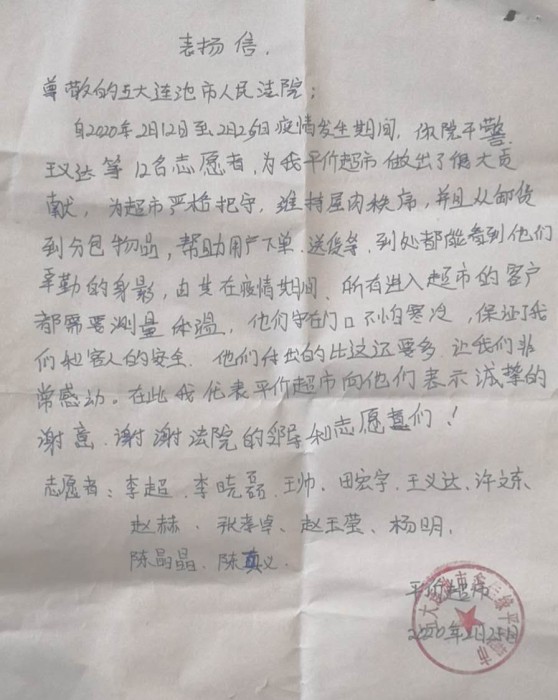 表扬信.
尊敬的五大连池市人民法院:
自2020年2月12日至2月25日疫情发生期间，你院干警
王义达等12名志愿者，为我平价超市做出了很大贡
献，为超市严格把守，维持屋内秩席，并且从卸货
到分包物品，帮助用户下单、送货等，到处都能看到他们
辛勤的身影，由其在疫情期间、所有进入超市的客户
都需要测量体温，他们守在门口不怕寒冷，保证了我
们和客人的安全. 他们付出的比这还要多 让我们非
常感动。在此我代表平价超市向他们表示诚挚的
谢意、谢谢法院的领导和志愿者们！
志愿者：李超、李晓磊、王帅、田宏宇、王义达、许文东、
赵赫、张孝卓、赵玉莹、杨明、
陈晶晶、陈真义.
平价超市
2020年2月25日